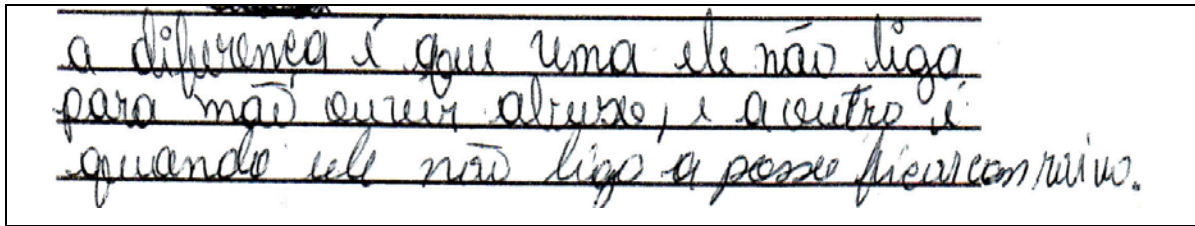 a diferença é que uma ele não liga
para mão ouvir abuso, e a outra é
quando ele não liga a pesso ficar com raiva.